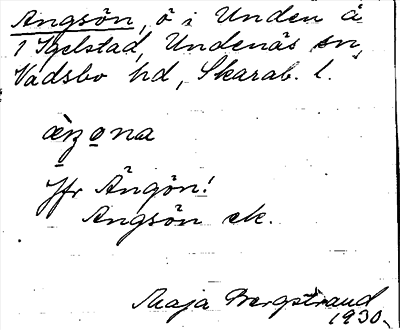 Ängsön, ö i Unden å
1 Igelstad, Undenäs sn,
Vadsbo hd, Skarab. l.
Jfr Ängön!
Ängsön ek.
Maja Bergstrand
1930.